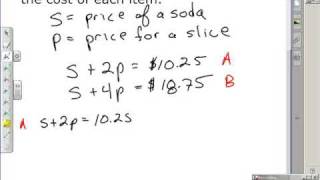 the cost of each item.
s = price of a soda
p = price for a slice
s + 2p = $10.25 A
s + 4p = $18.75 B
A s+2p = 10.25